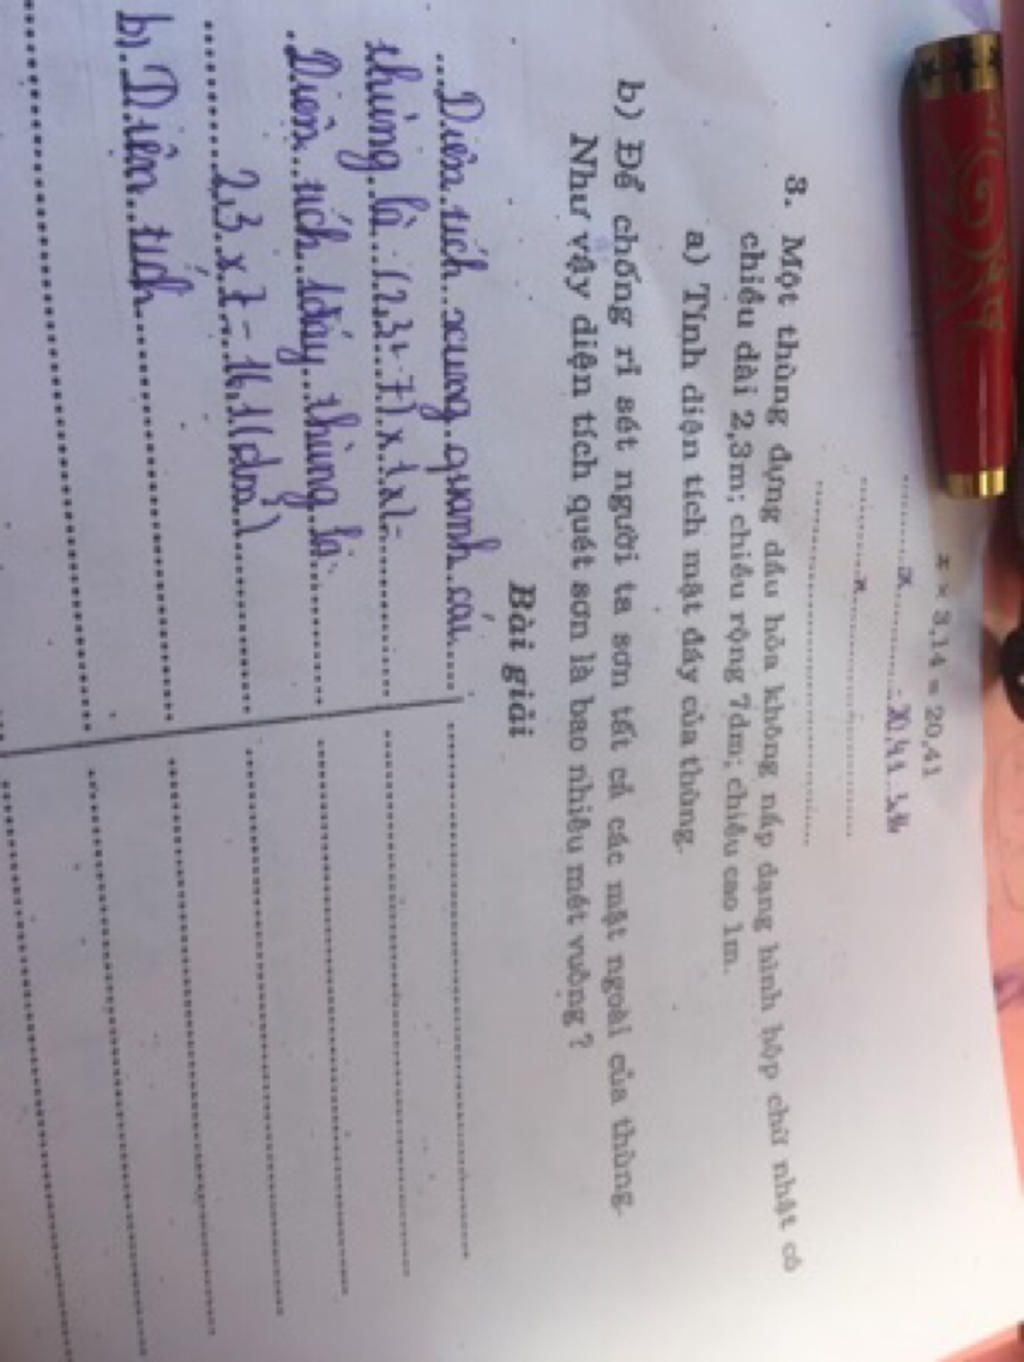 x × 3,14 = 20,41
x
x
3. Một thùng đựng dầu hỏa không nắp dạng hình hộp chữ nhật có
chiều dài 2,3m; chiều rộng 7dm; chiều cao 1m.
a) Tính diện tích mặt đáy của thùng.
b) Để chống rỉ sét người ta sơn tất cả các mặt ngoài của thùng.
Như vậy diện tích quét sơn là bao nhiêu mét vuông ?
Bài giải
Diện tích xung quanh cái
thùng là : (2,3 + 7) x 1 x 2 =
Diện tích đáy thùng là :
2,3 x 7 = 16,1 (dm²)
b) Diện tích